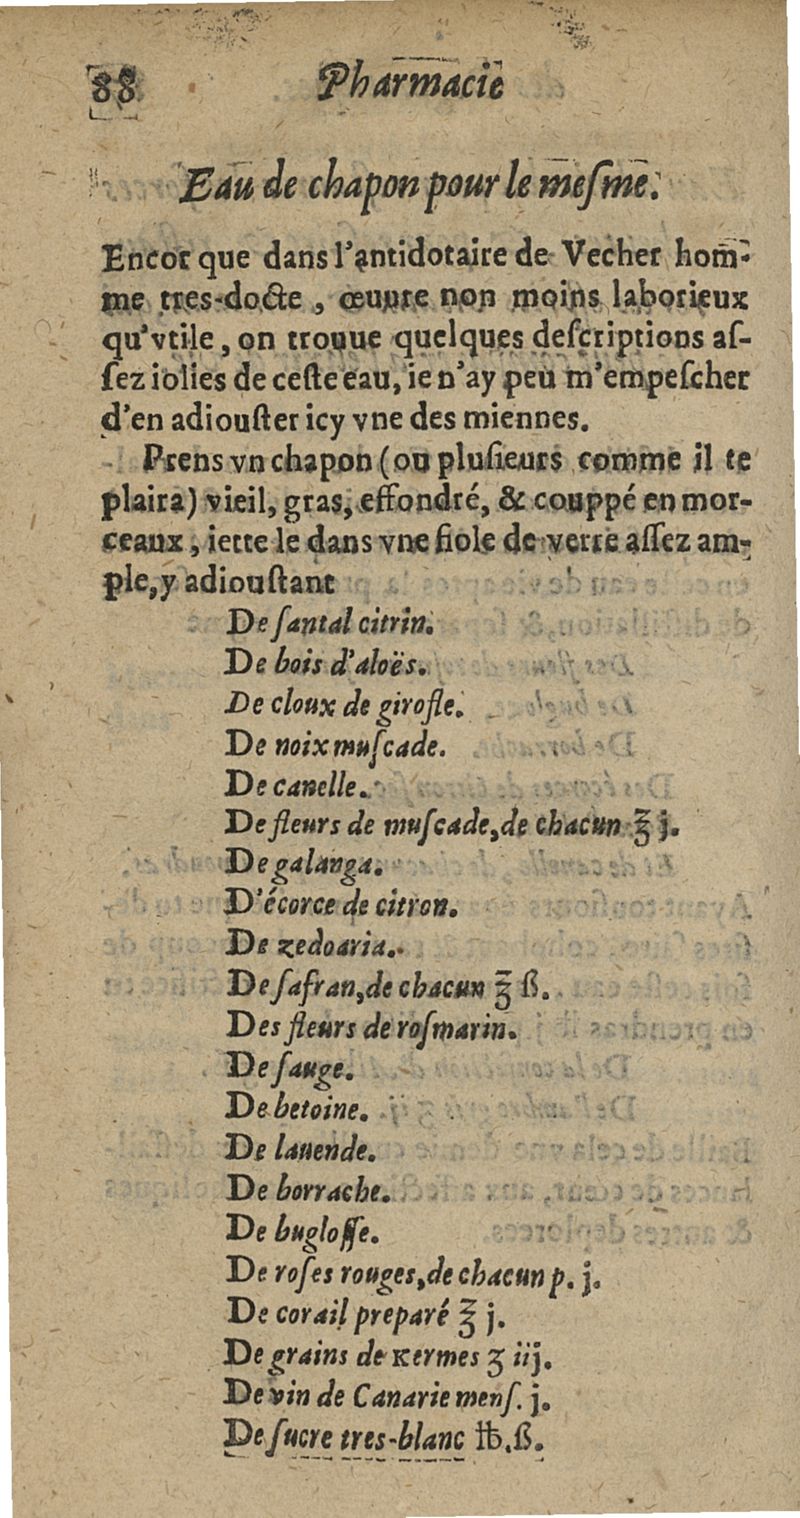 88 Pharmacie
Eau de chapon pour le meſme.
Encor que dans l'antidotaire de Vecher hom-
me tres-docte, œuure non moins laborieux
qu'vtile, on trouue quelques deſcriptions aſ-
ſez iolies de ceſte eau, ie n'ay peu m'empeſcher
d'en adiouſter icy vne des miennes.
Prens vn chapon (ou pluſieurs comme il te
plaira) vieil, gras, effondré, & couppé en mor-
ceaux, iette le dans vne fiole de verre aſſez am-
ple, y adiouſtant
De ſantal citrin.
De bois d'aloës.
De cloux de girofle.
De noix muſcade.
De canelle.
De fleurs de muſcade, de chacun ℥ j.
De galanga.
D'écorce de citron.
De zedoaria.
De ſafran, de chacun ℥ ß.
Des fleurs de roſmarin.
De ſauge.
De betoine.
De lauende.
De borrache.
De bugloſſe.
De roſes rouges, de chacun p. j.
De corail preparé ℥ j.
De grains de kermes ʒ iij.
De vin de Canarie menſ. j.
De ſucre tres-blanc ℔. ß.